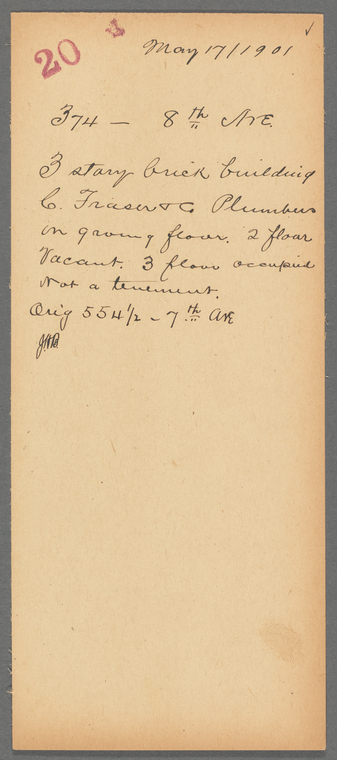 20
May 17/1901
374 — 8th Ave.
3 story brick building
C. Fraser & Co Plumbers
on groung floor. 2 floor
Vacant. 3 floor occupied
Not a tenement.
Orig 554 1/2 - 7th Ave